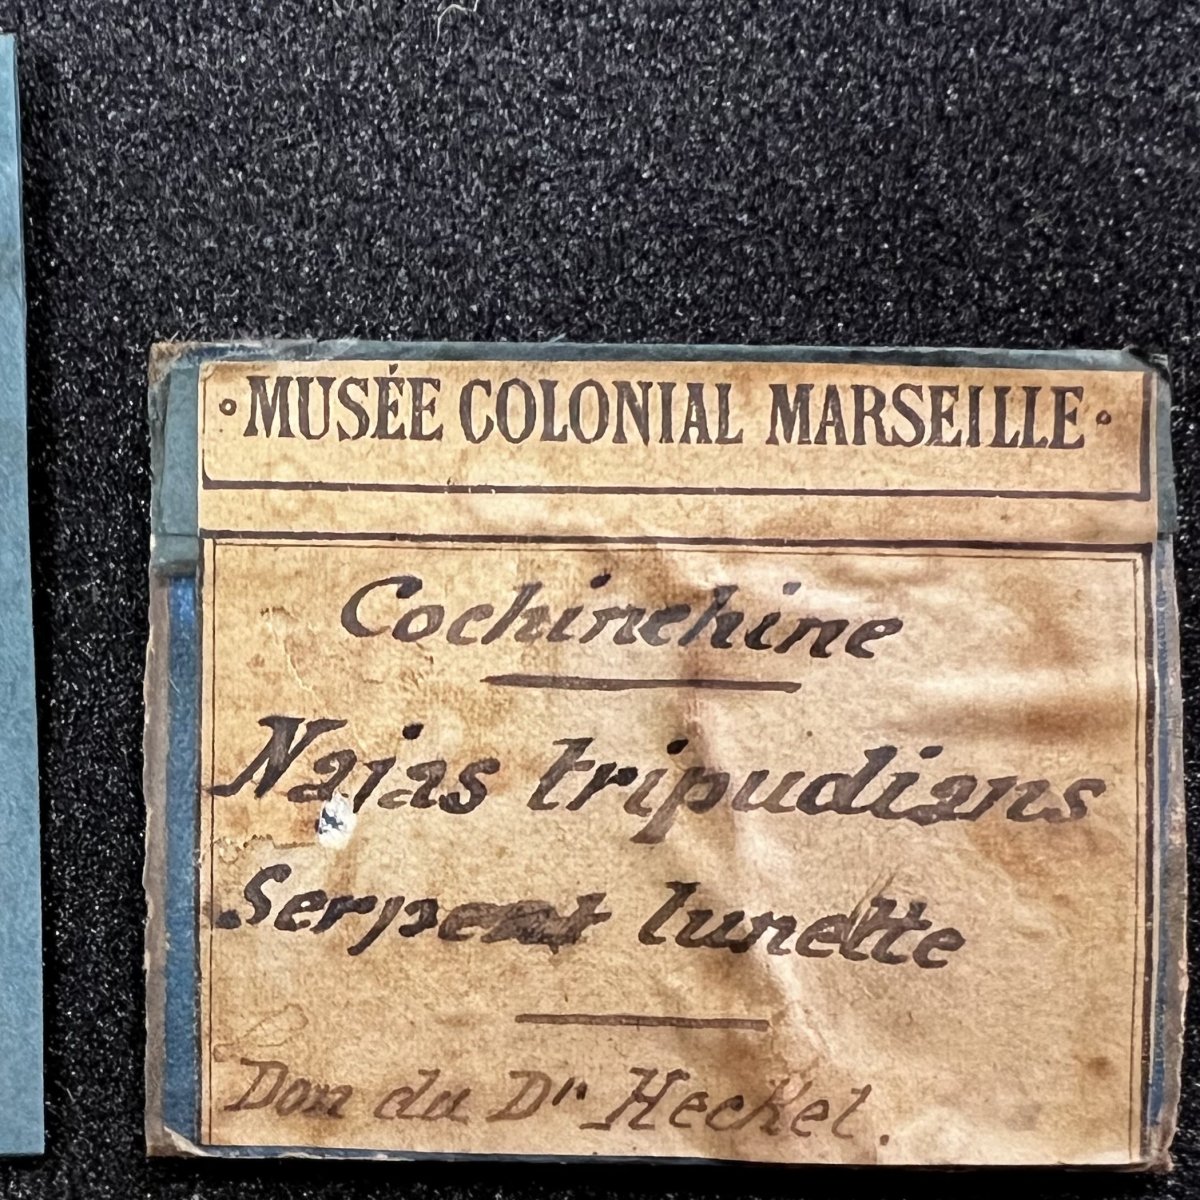 ◦ MUSÉE COLONIAL MARSEILLE ◦
Cochinchine
Najas tripudians
Serpent lunette
Don du Dr Heckel.